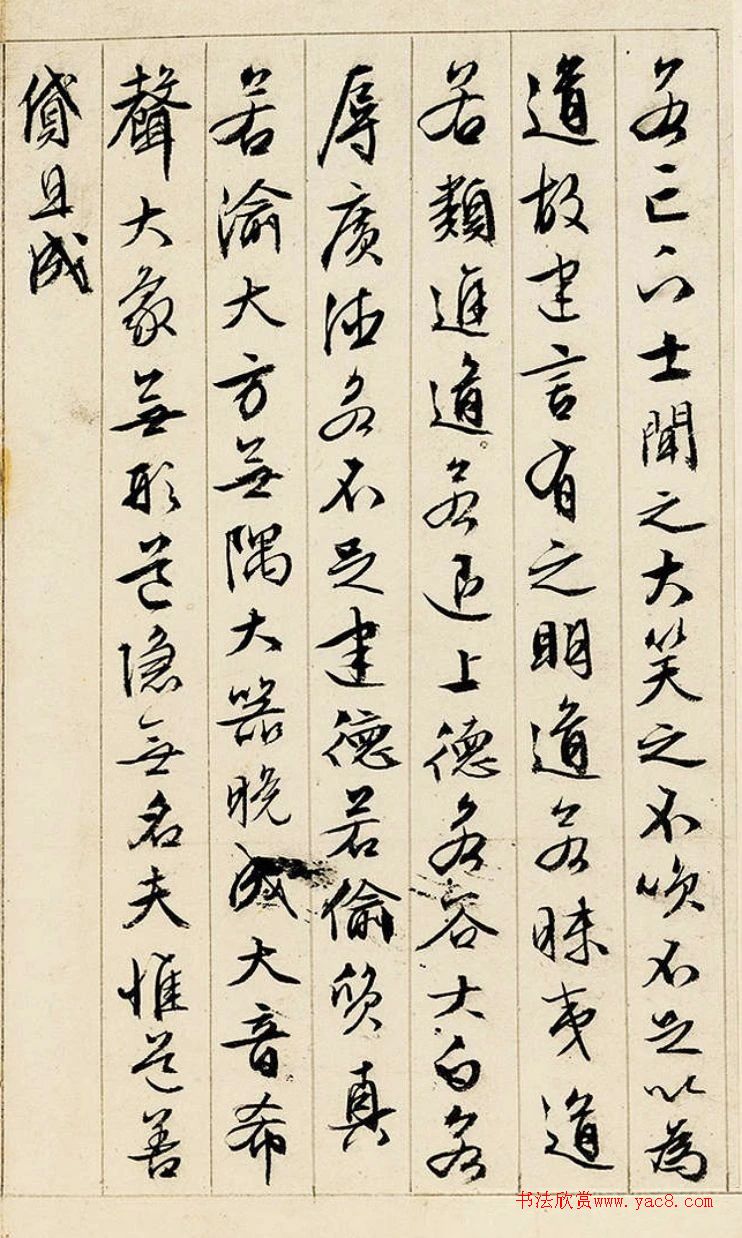 若亡下士聞之大笑之不笑不足以為
道故建言有之明道若昧夷道
若類進道若退上德若谷大白若
辱廣德若不足建德若偷質真
若渝大方無隅大器晚成大音希
聲大象無形道隱無名夫惟道善
貸且成
书法欣赏www.yac8.com